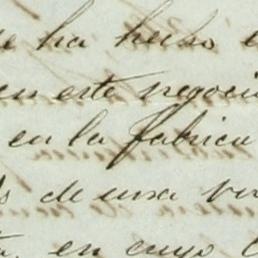 se ha hecho
en este negocio
en la fabrica
de una
en cuyo